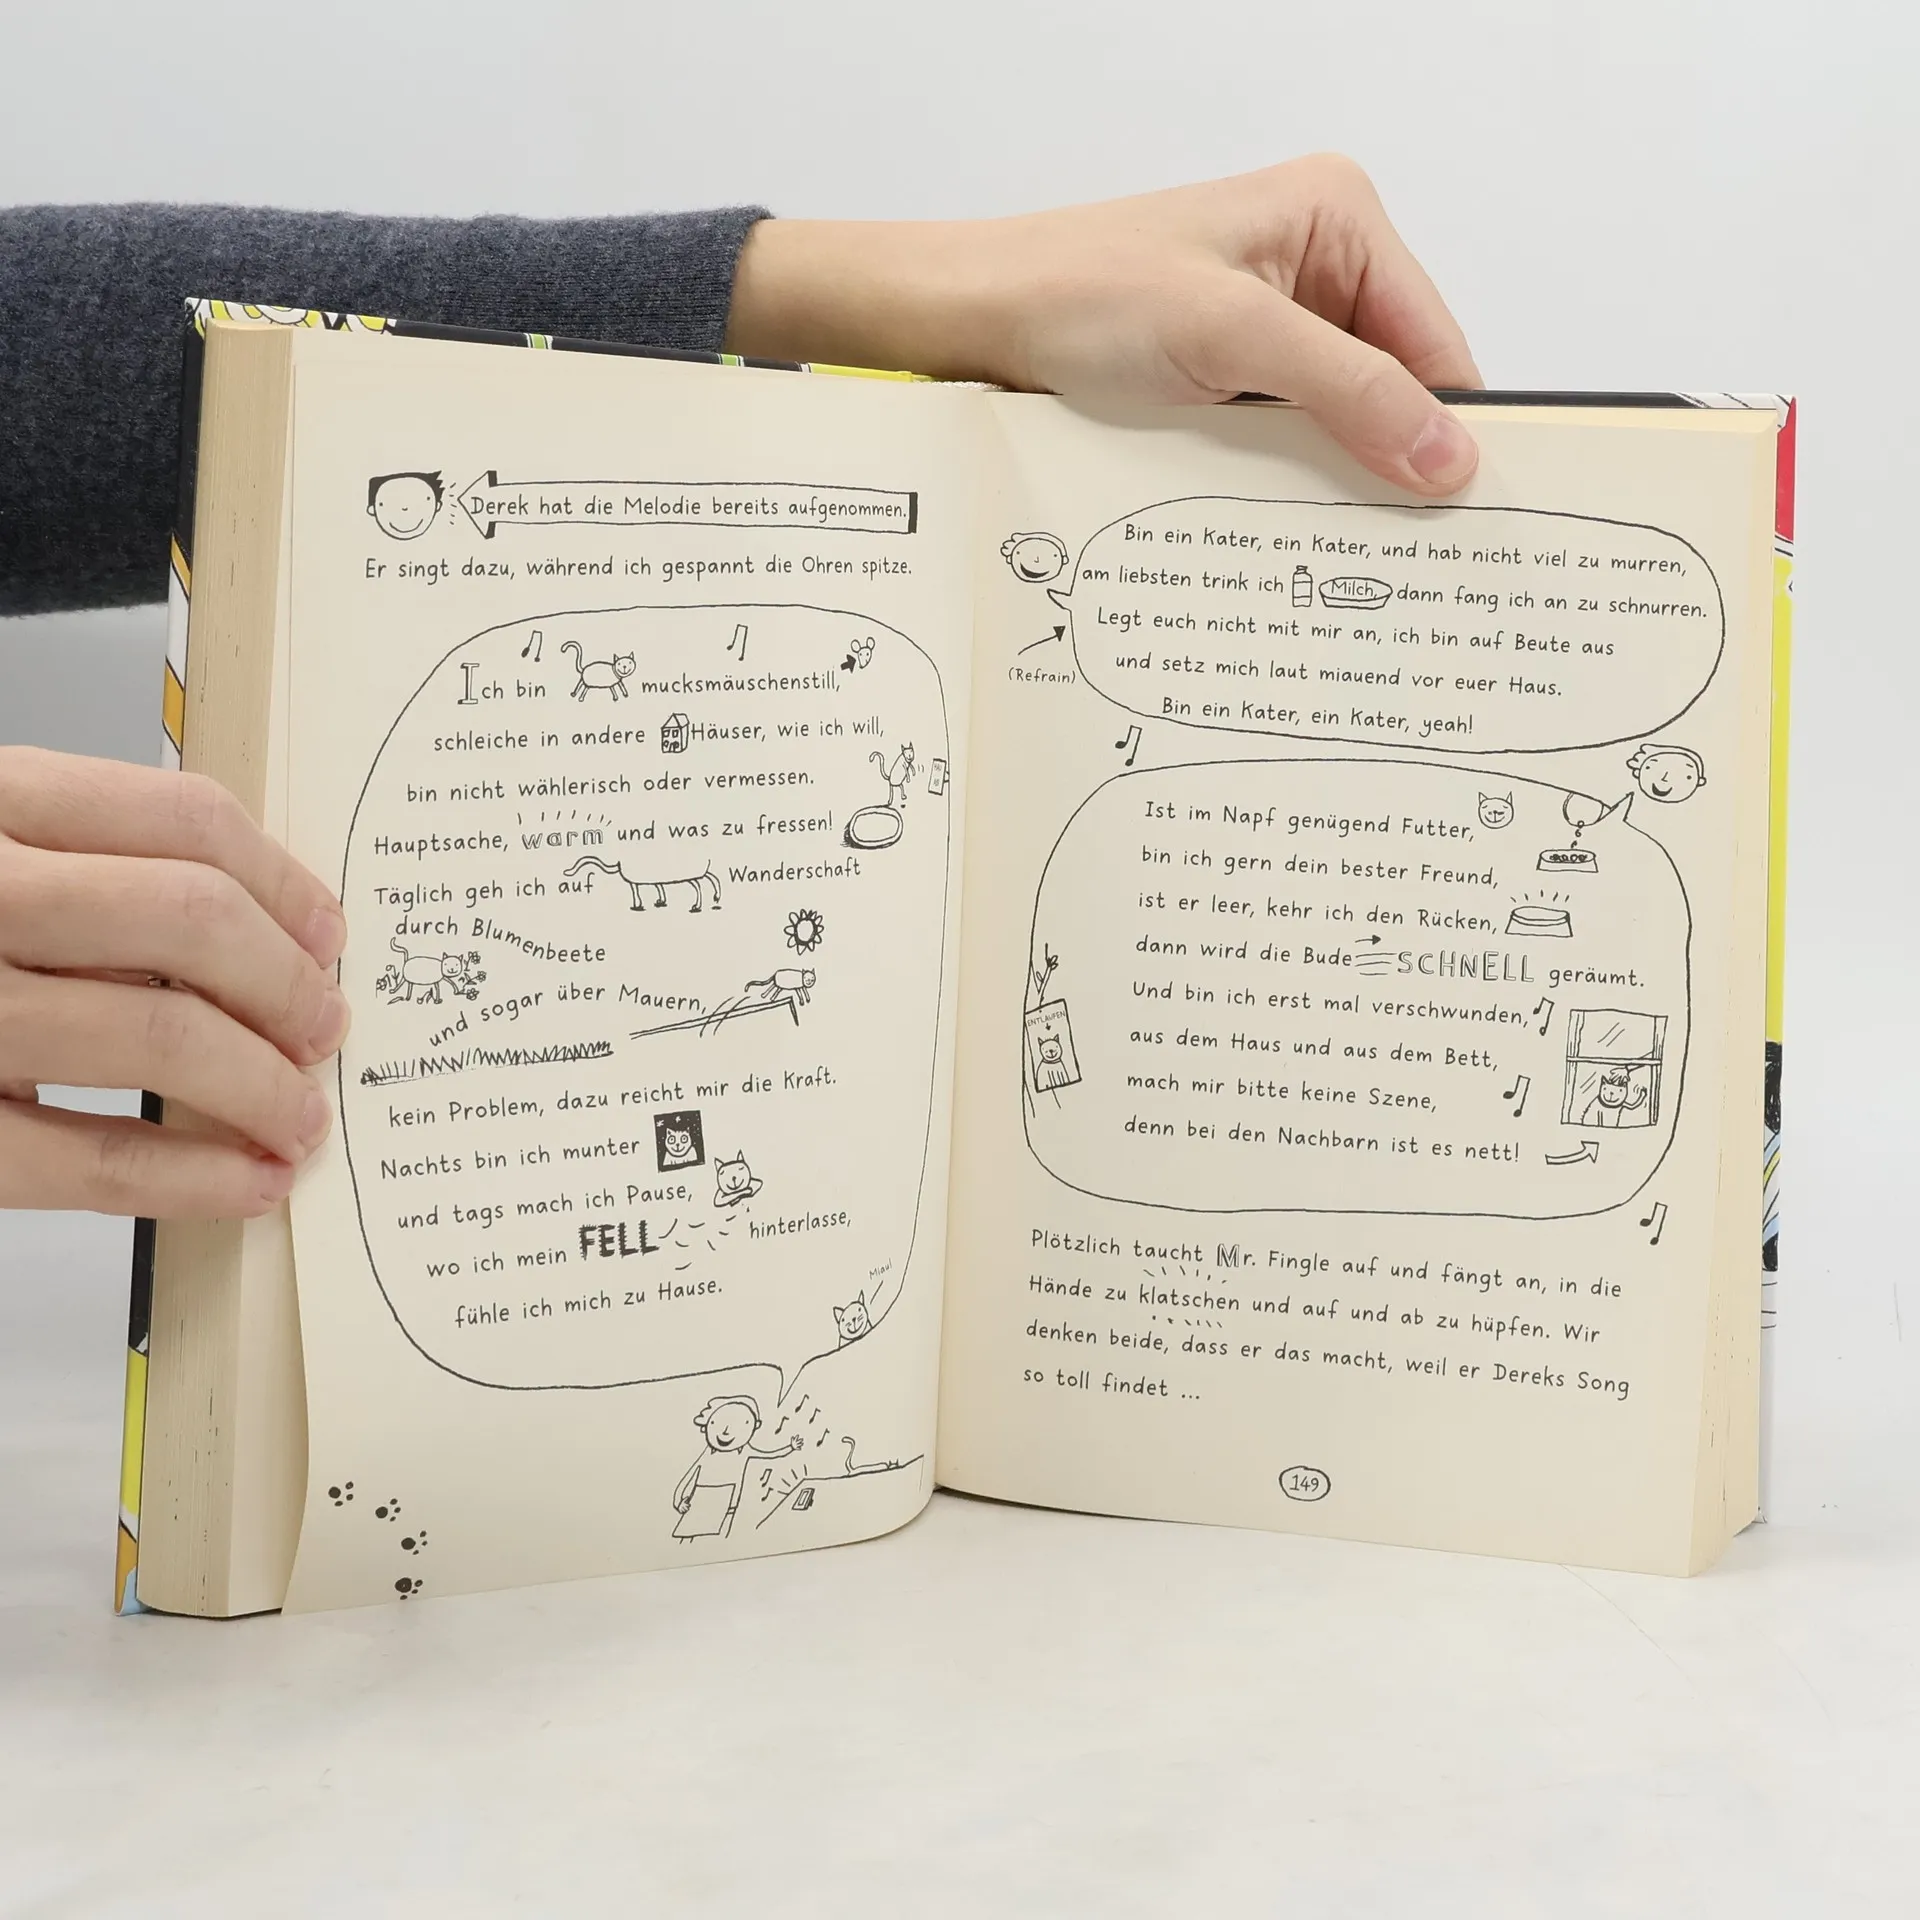 Derek hat die Melodie bereits aufgenommen.
Er singt dazu, während ich gespannt die Ohren spitze.
Ich bin mucksmäuschenstill,
schleiche in andere Häuser, wie ich will,
bin nicht wählerisch oder vermessen.
Hauptsache, warm und was zu fressen!
Täglich geh ich auf Wanderschaft
durch Blumenbeete
und sogar über Mauern,
kein Problem, dazu reicht mir die Kraft.
Nachts bin ich munter
und tags mach ich Pause,
wo ich mein FELL hinterlasse,
fühle ich mich zu Hause.
Miau!
Bin ein Kater, ein Kater, und hab nicht viel zu murren,
am liebsten trink ich Milch, dann fang ich an zu schnurren.
Legt euch nicht mit mir an, ich bin auf Beute aus
und setz mich laut miauend vor euer Haus.
Bin ein Kater, ein Kater, yeah!
(Refrain)
Ist im Napf genügend Futter,
bin ich gern dein bester Freund,
ist er leer, kehr ich den Rücken,
dann wird die Bude SCHNELL geräumt.
Und bin ich erst mal verschwunden,
aus dem Haus und aus dem Bett,
mach mir bitte keine Szene,
denn bei den Nachbarn ist es nett!
ENTLAUFEN
Plötzlich taucht Mr. Fingle auf und fängt an, in die
Hände zu klatschen und auf und ab zu hüpfen. Wir
denken beide, dass er das macht, weil er Dereks Song
so toll findet ...
149